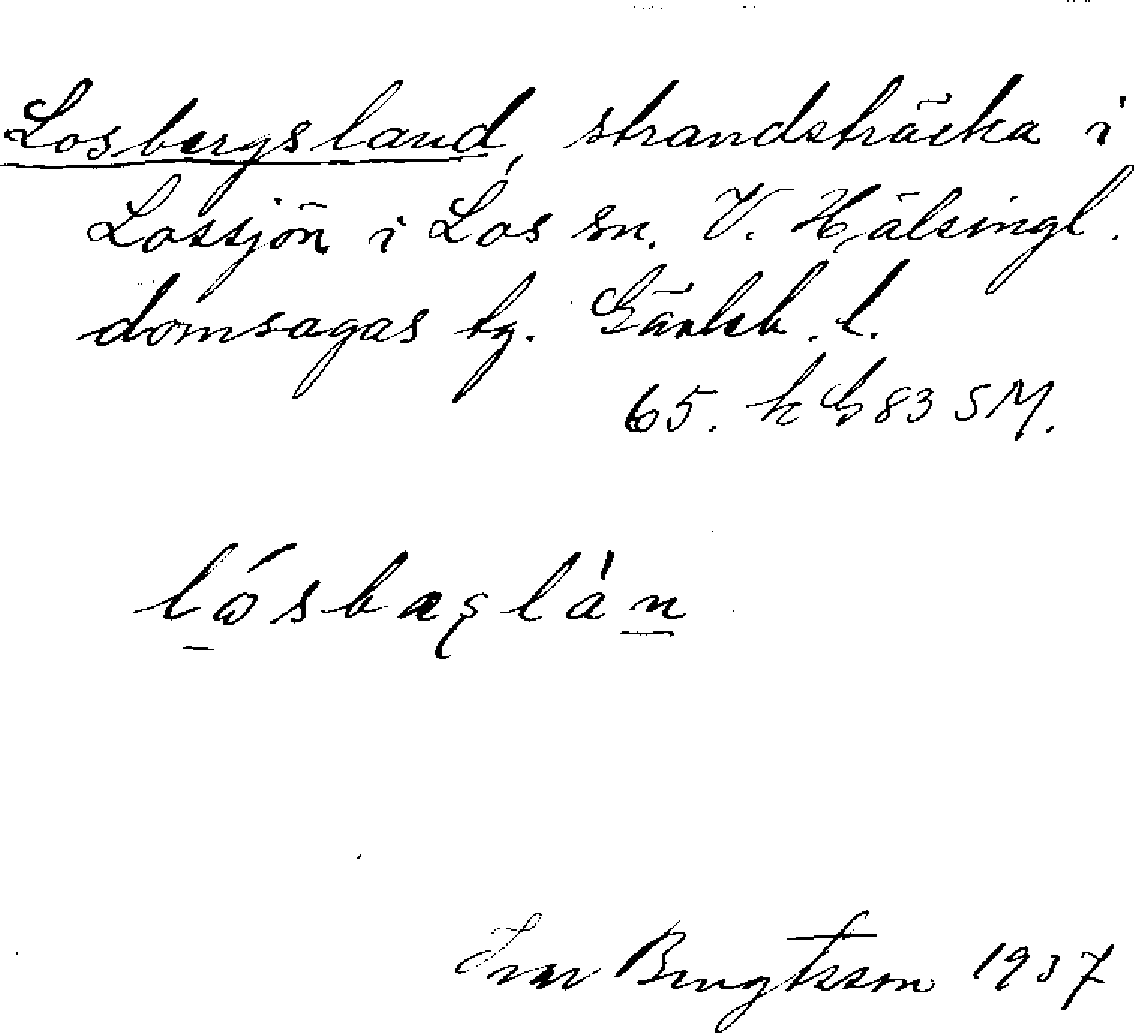 Losbergsland, strandsträcka i
Lossjön i Los sn. V. Hälsingl.
domsagas tg. Gävleb. l.
65. k G 83 SM.
lósbæȿlàn
Ivar Bengtsson 1937